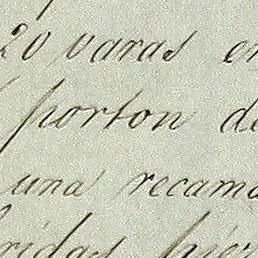 20 varas en
porton de
una recama
ridas piez